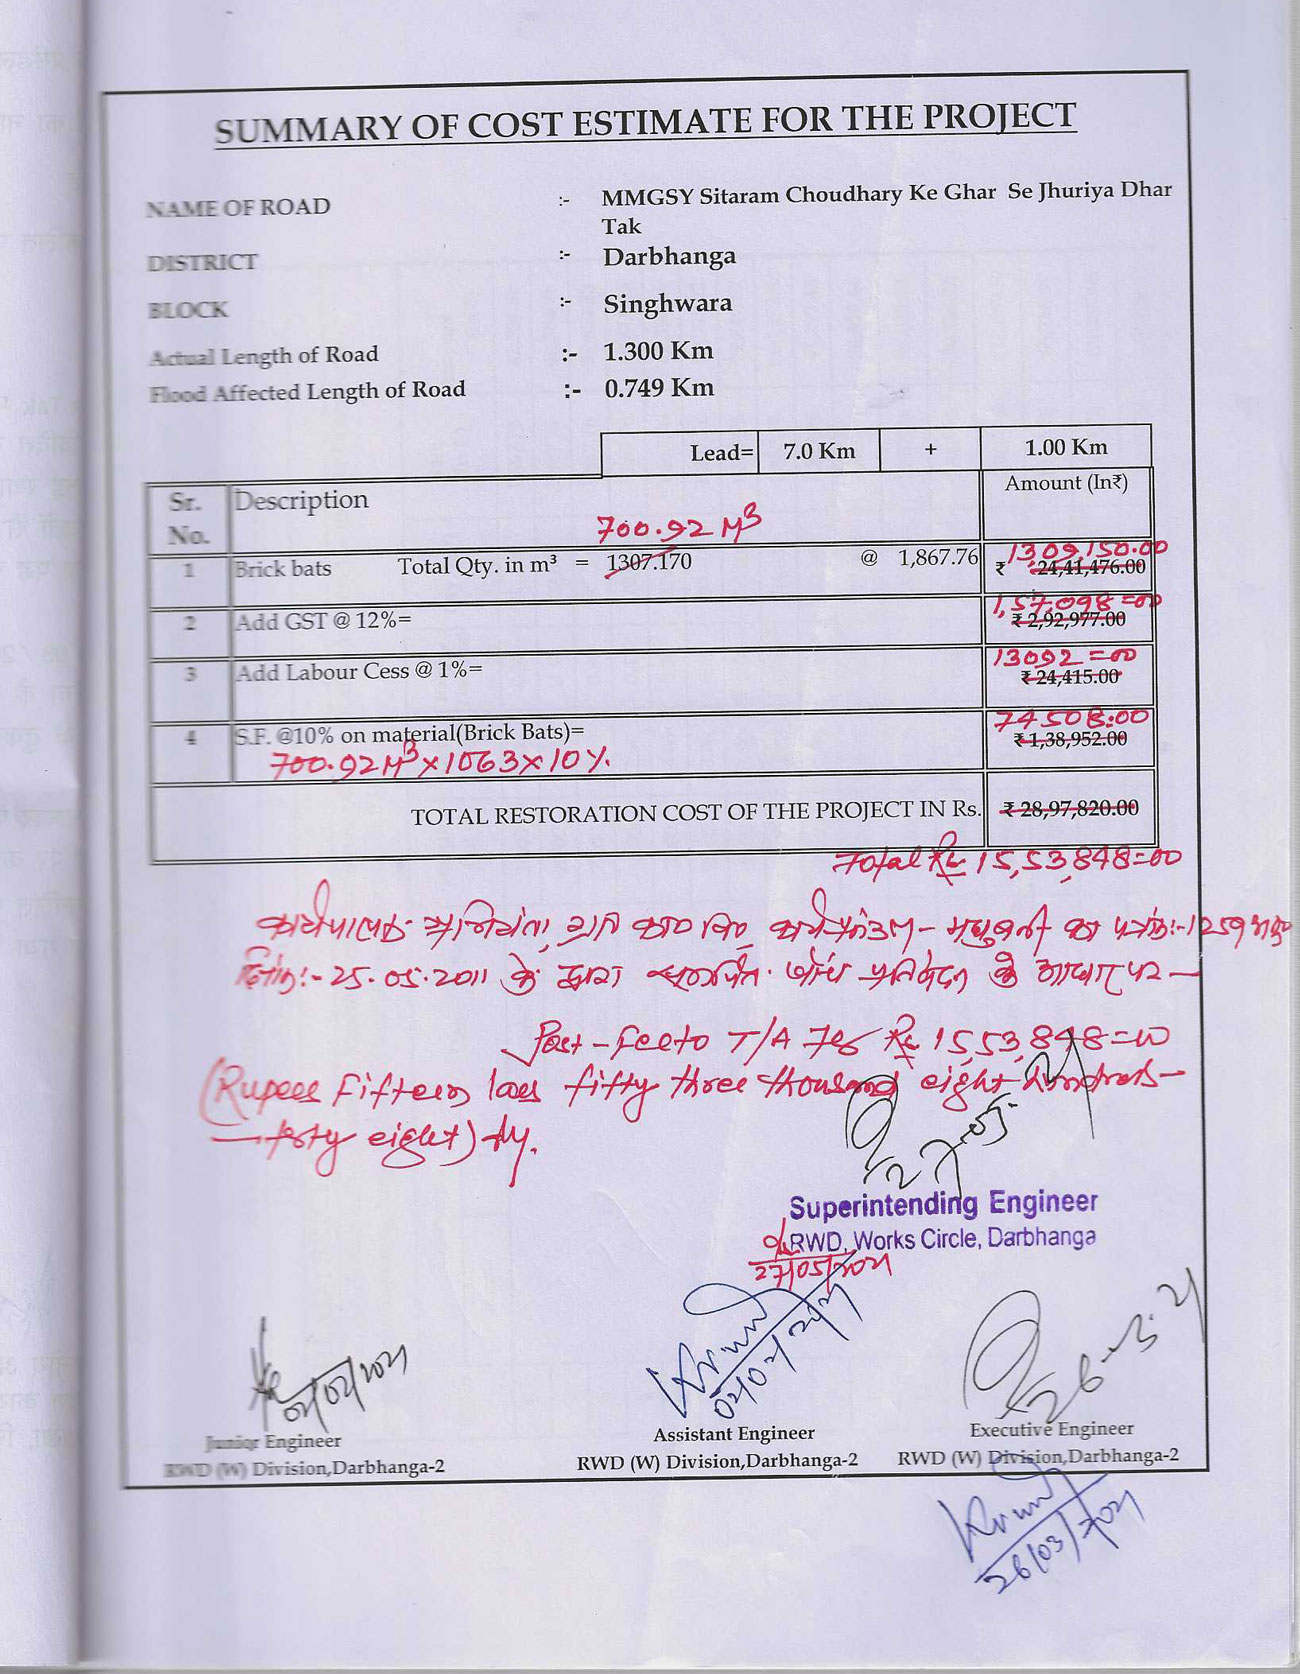 SUMMARY OF COST ESTIMATE FOR THE PROJECT
NAME OF ROAD :- MMGSY Sitaram Choudhary Ke Ghar Se Jhuriya Dhar
Tak
DISTRICT :- Darbhanga
BLOCK :- Singhwara
Actual Length of Road :- 1.300 Km
Flood Affected Length of Road :- 0.749 Km
Lead= 7.0 Km + 1.00 Km
Sr. No. Description Amount (In₹)
700.92 M³
1309,150.00
1 Brick bats Total Qty. in m³ = 1307.170 @ 1,867.76 ₹ 24,41,476.00
1,57,098=00
2 Add GST @ 12%= ₹ 2,92,977.00
13092=00
3 Add Labour Cess @ 1%= ₹ 24,415.00
74508.00
4 S.F. @10% on material(Brick Bats)= ₹ 1,38,952.00
700.92M³×1063×10%.
TOTAL RESTORATION COST OF THE PROJECT IN Rs. ₹ 28,97,820.00
Total Rs 15,53,848=00
कार्यपालक अभियंता, का पत्रांक:-1259
दिनांक:- 25.05.2011 के द्वारा समर्पित जाँच प्रतिवेदन के आधार पर—
T/A for Rs 15,53,848=00
(Rupees Fifteen lacs fifty three thousand eight hundred—
—forty eight) only.
27-05-
Superintending Engineer
RWD, Works Circle, Darbhanga
27/05/2021
26-3-21
Junior Engineer Assistant Engineer Executive Engineer
RWD (W) Division,Darbhanga-2 RWD (W) Division,Darbhanga-2 RWD (W) Division,Darbhanga-2
26/03/2021